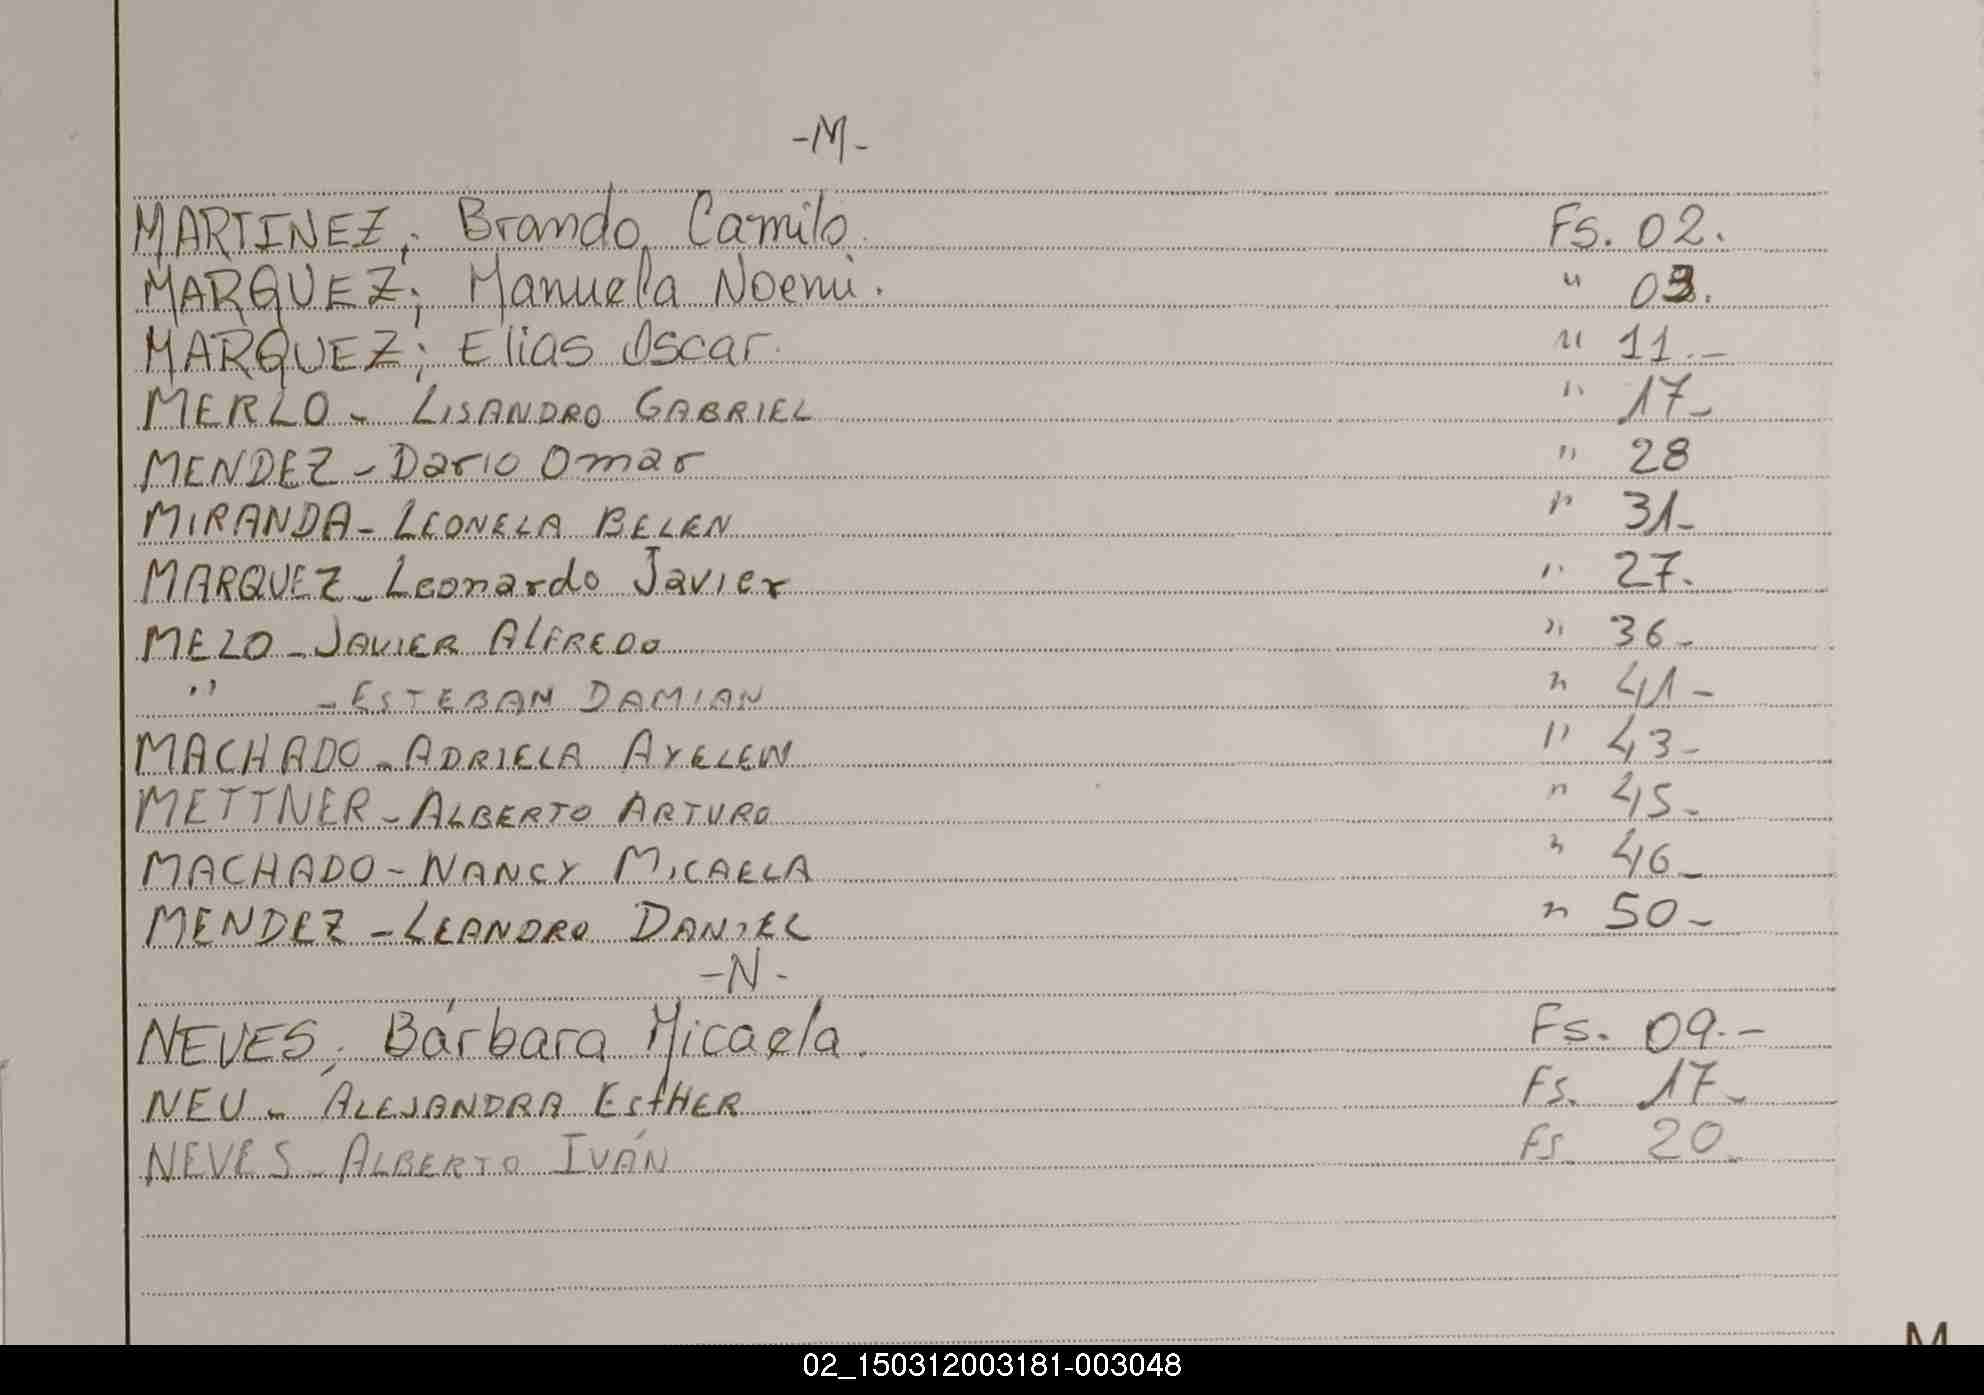 -M-
MARTINEZ; Brando Camilo. Fs. 02.
MARQUEZ; Manuela Noemi. " 03.
MARQUEZ; Elias Oscar. " 11.-
MERLO - LISANDRO GABRIEL " 17-
MENDEZ - Dario Omar " 28
MIRANDA - LEONELA BELEN " 31-
MARQUEZ - Leonardo Javier " 27.
MELO - JAVIER ALFREDO " 36-
" - ESTEBAN DAMIAN " 41-
MACHADO - ADRIELA AYELEN " 43-
METTNER - ALBERTO ARTURO " 45-
MACHADO - NANCY MICAELA " 46-
MENDEZ - LEANDRO DANIEL " 50-
-N-
NEVES; Bárbara Micaela. Fs. 09.-
NEU - ALEJANDRA EStHER Fs. 17-
NEVES - ALBERTO IVÁN Fs 20-
M
02_150312003181-003048